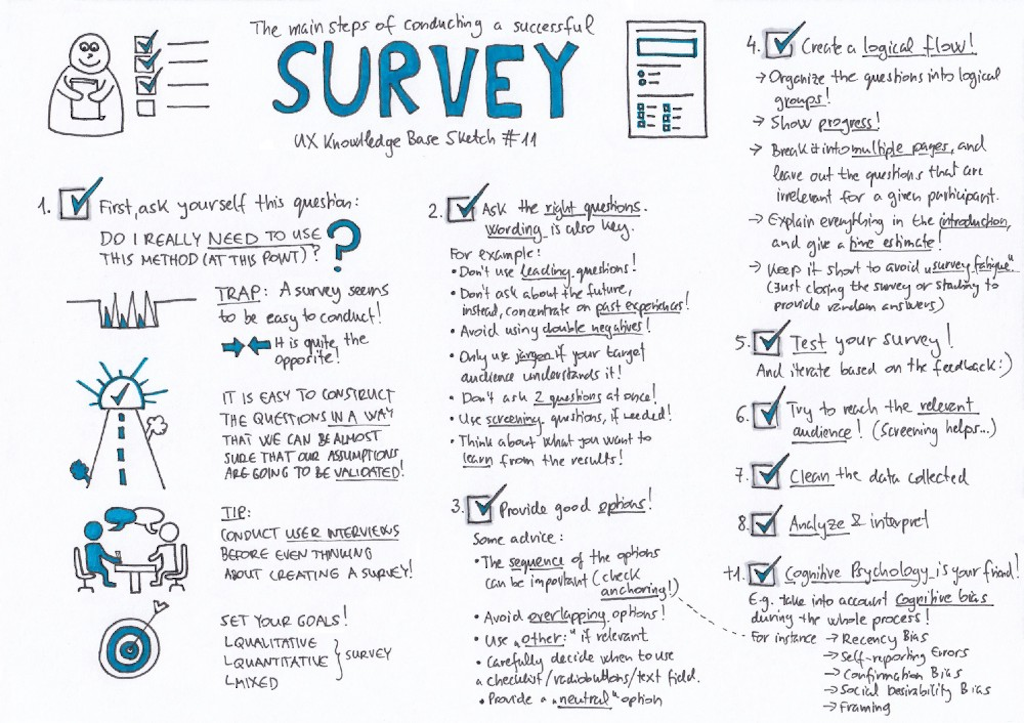 The main steps of conducting a successful
SURVEY
UX Knowledge Base Sketch #11
1. First, ask yourself this question:
DO I REALLY NEED TO USE
THIS METHOD (AT THIS POINT)?
?
TRAP: A survey seems
to be easy to conduct!
It is quite the
opposite!
IT IS EASY TO CONSTRUCT
THE QUESTIONS IN A WAY
THAT WE CAN BE ALMOST
SURE THAT OUR ASSUMPTIONS
ARE GOING TO BE VALIDATED!
TIP:
CONDUCT USER INTERVIEWS
BEFORE EVEN THINKING
ABOUT CREATING A SURVEY!
SET YOUR GOALS!
QUALITATIVE
QUANTITATIVE } SURVEY
MIXED
2. Ask the right questions.
Wording is also key.
For example:
• Don't use leading questions!
• Don't ask about the future,
instead, concentrate on past experiences!
• Avoid using double negatives!
• Only use jargon if your target
audience understands it!
• Don't ask 2 questions at once!
• Use screening questions, if needed!
• Think about what you want to
learn from the results!
3. Provide good options!
Some advice:
• The sequence of the options
can be important (check
anchoring!)
• Avoid overlapping options!
• Use „other:" if relevant
• Carefully decide when to use
a checklist/radiobuttons/text field.
• Provide a „neutral" option
4. Create a logical flow!
→ Organize the questions into logical
groups!
→ Show progress!
→ Break it into multiple pages, and
leave out the questions that are
irrelevant for a given participant.
→ Explain everything in the introduction,
and give a time estimate!
→ Keep it short to avoid „survey fatigue"
(Just closing the survey or starting to
provide random answers)
5. Test your survey!
And iterate based on the feedback:)
6. Try to reach the relevant
audience! (Screening helps...)
7. Clean the data collected
8. Analyze & interpret
+1. Cognitive Psychology is your friend!
E.g. take into account cognitive bias
during the whole process!
For instance → Recency Bias
→ Self-reporting Errors
→ Confirmation Bias
→ Social Desirability Bias
→ Framing